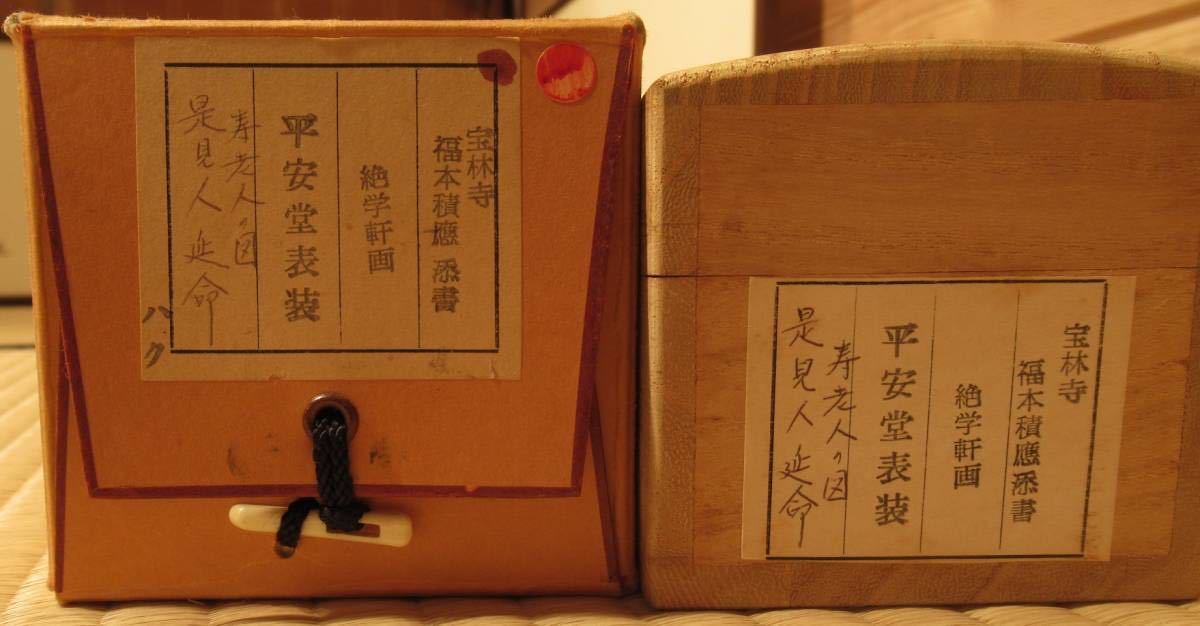 宝林寺
福本積應 添書
絶学軒画
平安堂表装
寿老人の図
是見人延命
ハク
宝林寺
福本積應添書
絶学軒画
平安堂表装
寿老人の図
是見人延命